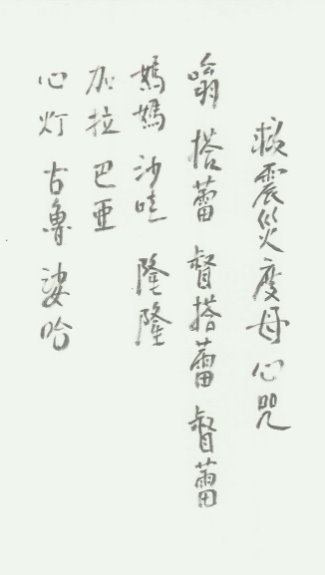 救震災度母心咒
嗡 搭蕾 督搭蕾 督蕾
媽媽 沙哇 隆隆
加拉 巴亞
心灯 古魯 娑哈